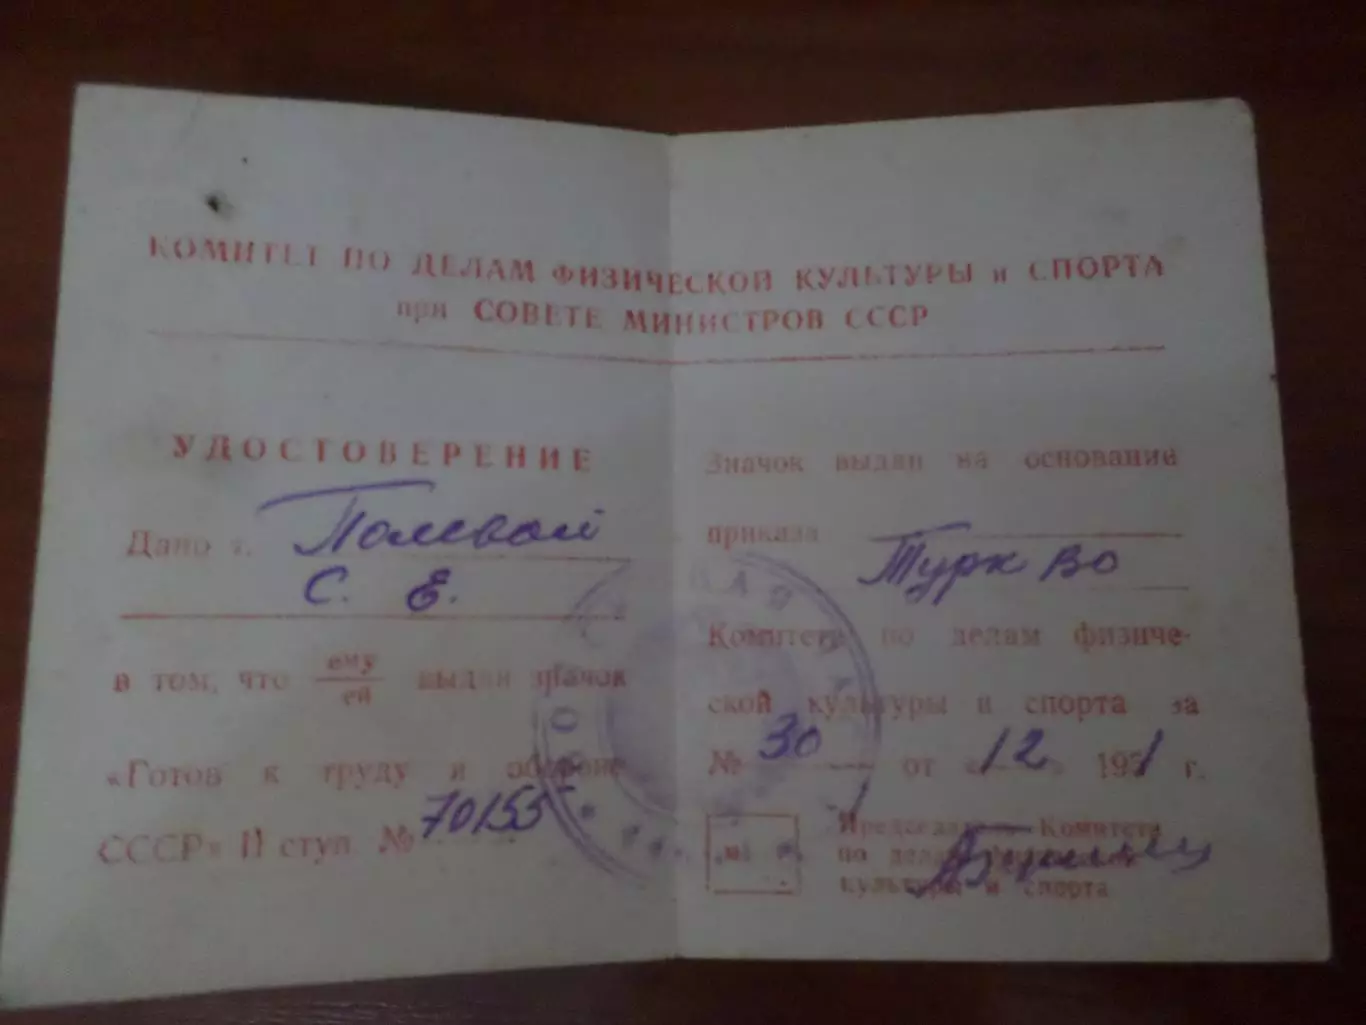 КОМИТЕТ ПО ДЕЛАМ ФИЗИЧЕСКОЙ КУЛЬТУРЫ и СПОРТА
при СОВЕТЕ МИНИСТРОВ СССР
УДОСТОВЕРЕНИЕ
Дано т. Полевой
С. Е.
в том, что ему/ей выдан значок
«Готов к труду и обороне
СССР» II ступ. № 70155
Значок выдан на основании
приказа Турк ВО
Комитета по делам физиче-
ской культуры и спорта за
№ 30 от «12» 1951 г.
Председатель Комитета
по делам физической
культуры и спорта